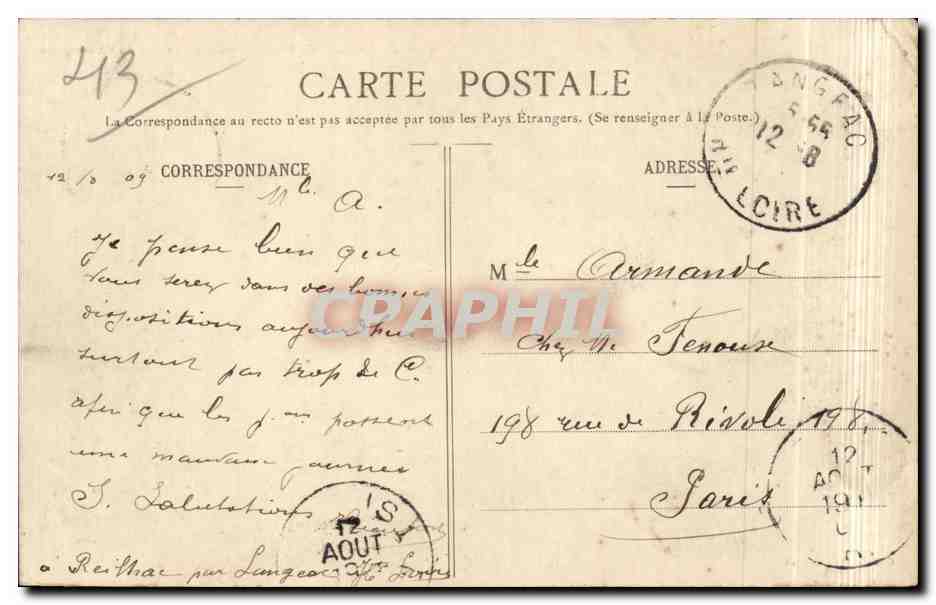 43
CARTE POSTALE
La Correspondance au recto n'est pas acceptée par tous les Pays Étrangers. (Se renseigner à la Poste.)
CORRESPONDANCE
12/8 09
Mle A.
Je pense bien que
vous serez dans des bonnes
dispositions aujourd'hui
surtout pas trop de C.
afin que les passent
une mauvaise journée
S. Salutations
à Reilhac par Langeac Hte Loire
ADRESSE
Mlle Armande
Chez Mr Fenouse
198 rue de Rivoli 198
Paris
LANGEAC
12 8
HTE LOIRE
12
AOUT
12
AOUT
CPAPHIL